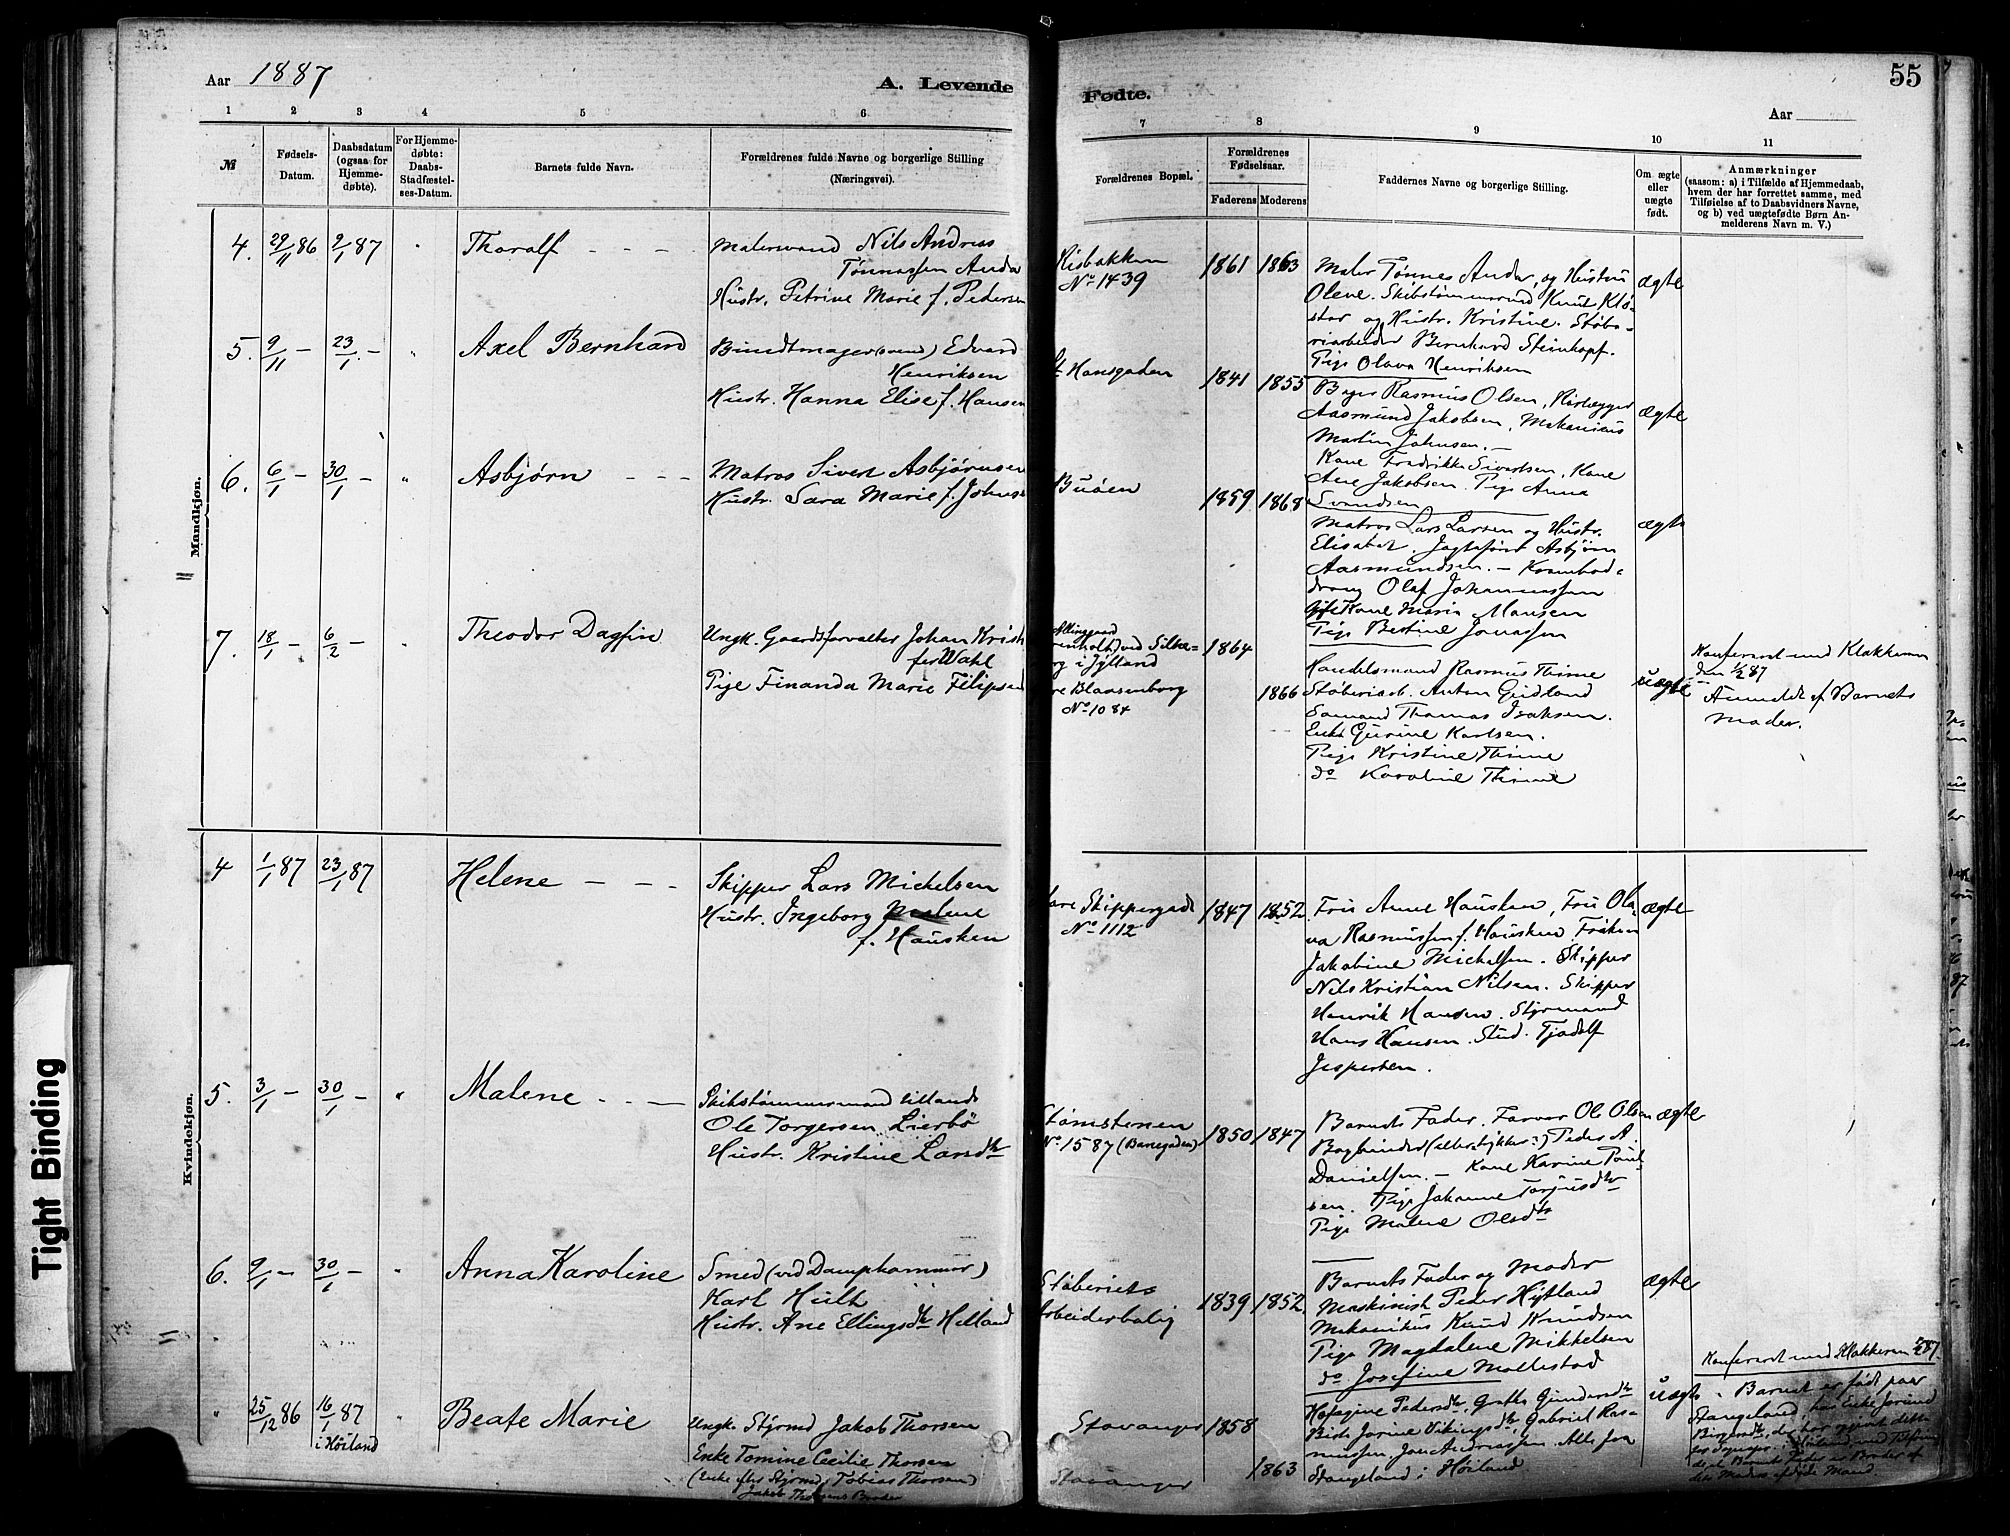 Aar 1887
A. Levende
Fødte.
55
Aar
1 2 3 4 5 6 7 8 9 10 11
№
Fødsels-
Datum.
Daabsdatum
(ogsaa for
Hjemme-
døbte).
For Hjemme-
døbte:
Daabs-
Stadfæstel-
ses-Datum.
Barnets fulde Navn.
Forældrenes fulde Navne og borgerlige Stilling
(Næringsvei).
Forældrenes Bopæl.
Forældrenes
Fødselsaar.
Faderens Moderens
Faddernes Navne og borgerlige Stilling.
Om ægte
eller
uægte
født.
Anmærkninger
(saasom: a) i Tilfælde af Hjemmedaab,
hvem der har forrettet samme, med
Tilføielse af to Daabsvidners Navne,
og b) ved uægtefødte Børn An-
melderens Navn m. V.)
Mandkjøn.
4. 29/11 86 9/1 87 Tharalf
Malersvend Nils Andreas
Tønnassen Anda
Hustr. Petrine Marie f. Pedersen
Risbakken
No 1439
1861 1863
Maler Tønnes Anda, og Hustru
Olene. Skibstømmermd Knut Klø-
star og Hustr. Kristine. Støbe-
riarbeider Bernhard Steinkopf.
Pige Olava Henriksen
ægte
5. 9/11 – 23/1 – Axel Bernhard
Bundtmager(svend) Edvard
Henriksen
Hustr. Hanna Elise f. Hansen
St Hansgaden
1841 1855
Rasmus Olsen,
Aasmund Jakobsen, Mekanicus
Martin Johnsen. –
Kone Fredrikke Sivertsen, Kone
Ane Jakobsen. Pige Anna
Svendsen
ægte
6. 6/1 – 30/1 – Asbjørn
Matros Sivert Asbjørnsen
Hustr. Sara Marie f. Johns
Buøen
1859 1868
Matros Lars Larsen og Hustr.
Elisabet. Jagtefører Asbjørn
Aasmundsen. – Krambod-
dreng Olaf Johannessen
Kone Maria Monsen
Pige Bertine Jonassen
ægte
7. 18/1 – 6/2 – Theodor Dagfin
Ungk. Gaardsforvalter Johan Krist
fer Wahl
Pige Finanda Marie Filipsen
ved Silke-
rg i Jylland
re Blaasenborg
No 1084
1864
1866
Handelsmand Rasmus Thime
Støberiarb. Anton Gridland
Sømand Thomas Isaksen.
Enke Gurine Karlsen.
Pige Kristine Thime
do Karoline Thime
uægte
Konfereret med Klokkeren
den 1/2 87
Anmeldt af Barnets
Moder.
Kvindekjøn.
4 1/1 87 23/1 87 Helene
Skipper Lars Michelsen
Hustr. Ingeborg Malene
f. Hausken
Skippergade
No 1112
1847 1852
Fru Anne Hausken, Fru Ola-
va Rasmussen f. Hausken Frøken
Jakobine Michelsen. Skipper
Nils Kristian Nilsen. Skipper
Henrik Hansen. Styrmand
Hans Hansen. Stud. Tjodolf
Jespersen.
ægte
5. 3/1 – 30/1 – Malene
Skibstømmermand
Ole Torgersen Lierbø
Hustr. Kristine Larsdtr
Stømstenen
No 1587 (Banegaden)
1850 1847
Barnets Fader. Farver Ole Olsen
Bogbinder Peder A.
Danielsen. – Kone Karine Poul-
sen. Pige Johanne Torjusdtr
Pige Malene Olsdtr
ægte
6. 9/1 – 30/1 – Anna Karoline
Smed (ved Damphammer)
Karl Hult
Hustr. Ane Ellingsdtr Helland
Støberiets
Arbeiderbolig
1839 1852
Barnets Fader og Moder
Maskinist Peder Hytland
Mekanikus Knud Knudsen
Pige Magdalene Mikkelsen
do Josefine Mollestad
ægte
" 25/12 86 16/1 87 Beate Marie
i Høiland
Ungk. Styrmd Jakob Thorsen
Enke Tomine Cecilie Thorsen
(Enke efter Styrmd Tobias Thorsen)
Jakob Thorsens Broder
Stavanger
Stavanger
1858
1863
Pedersdtr, Grethe Gundersdtr
Jorine Vikingsdtr, Gabriel Ras-
mussen, Jon Andreassen. Alle fra
Stangeland i Høiland
uægte
Konfereret med Klokkeren
Barnet er født paa
Stangeland, hos Enke
Tight Binding